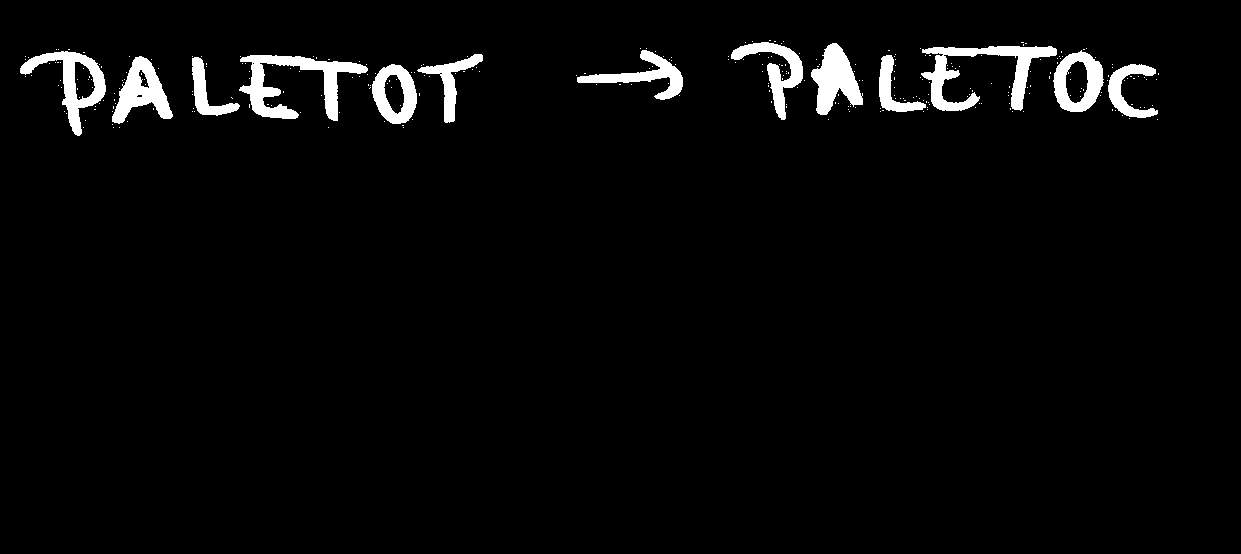 PALETOT → PALETOC